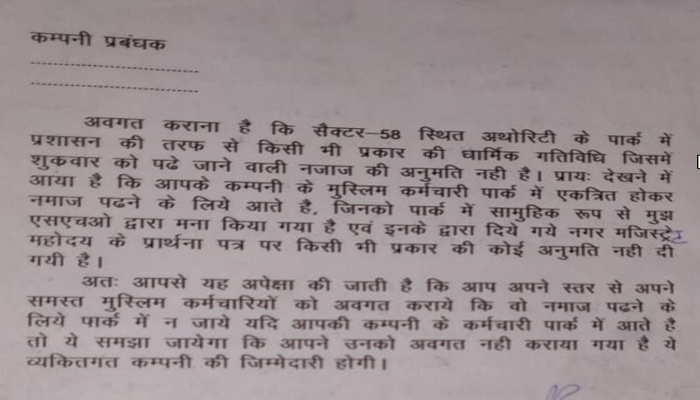 कम्पनी प्रबंधक
------------------------------
------------------------------
अवगत कराना है कि सैक्टर–58 स्थित अथोरिटी के पार्क में
प्रशासन की तरफ से किसी भी प्रकार की धार्मिक गतिविधि जिसमें
शुक्रवार को पढे जाने वाली नजाज की अनुमति नही है। प्रायः देखने में
आया है कि आपके कम्पनी के मुस्लिम कर्मचारी पार्क में एकत्रित होकर
नमाज पढने के लिये आते है, जिनको पार्क में सामुहिक रूप से मुझ
एसएचओ द्वारा मना किया गया है एवं इनके द्वारा दिये गये नगर मजिस्ट्रेट
महोदय के प्रार्थना पत्र पर किसी भी प्रकार की कोई अनुमति नही दी
गयी है।
अतः आपसे यह अपेक्षा की जाती है कि आप अपने स्तर से अपने
समस्त मुस्लिम कर्मचारियों को अवगत कराये कि वो नमाज पढने के
लिये पार्क में न जाये यदि आपकी कम्पनी के कर्मचारी पार्क में आते है
तो ये समझा जायेगा कि आपने उनको अवगत नही कराया गया है ये
व्यकितगत कम्पनी की जिम्मेदारी होगी।